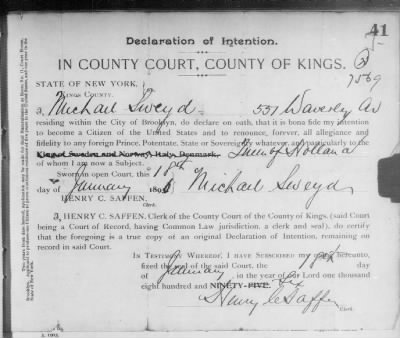 41
Declaration of Intention.
IN COUNTY COURT, COUNTY OF KINGS.
STATE OF NEW YORK,
KINGS COUNTY.
7569
I, Michael Sweyd 537 Waverley Av
residing within the City of Brooklyn, do declare on oath, that it is bona fide my intention
to become a Citizen of the United States and to renounce, forever, all allegiance and
fidelity to any foreign Prince, Potentate, State or Sovereignty whatever, and particularly to the
King of Sweden and Norway, Italy, Denmark, Queen of Holland
of whom I am now a Subject.
Sworn in open Court, this 18th
day of January 1896 Michael Sweyd
HENRY C. SAFFEN,
Clerk.
I, HENRY C. SAFFEN, Clerk of the County Court of the County of Kings, (said Court
being a Court of Record, having Common Law jurisdiction, a clerk and seal), do certify
that the foregoing is a true copy of an original Declaration of Intention, remaining on
record in said Court.
IN TESTIMONY WHEREOF, I HAVE SUBSCRIBED my hereunto,
fixed the seal of the said Court, the 18th day
of January in the year of our Lord one thousand
eight hundred and NINETY-FIVE. Six
Henry C Saffen
Clerk.